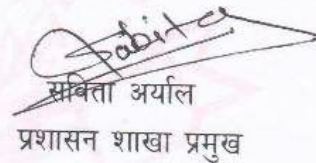 Sabita
सविता अर्याल
प्रशासन शाखा प्रमुख